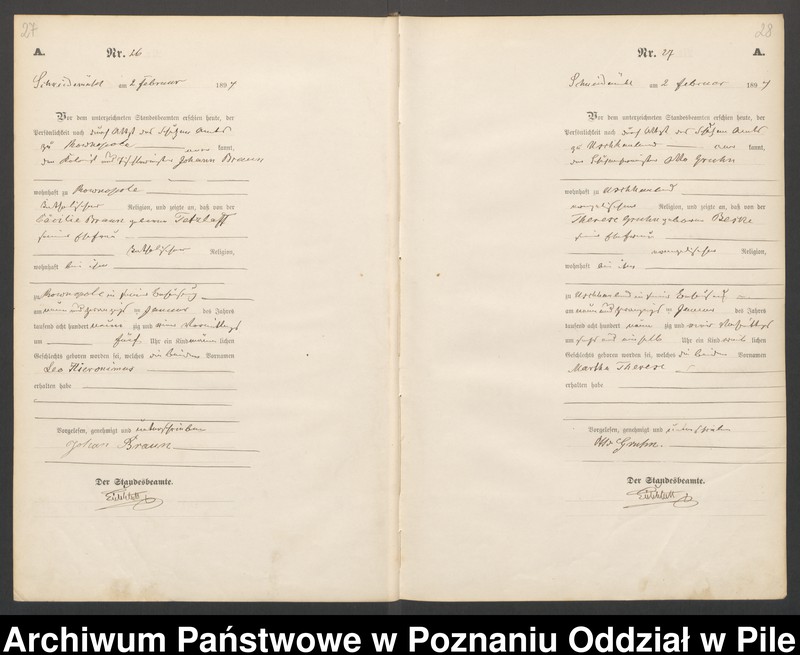 27
A.
Nr. 26
Schneidemühl am 2 Februar 1894
Vor dem unterzeichneten Standesbeamten erschien heute, der
Persönlichkeit nach durch Attest des Schulzen Amts
zu kannt,
der und Johann Braun
wohnhaft zu
katholischer Religion, und zeigte an, daß von der
Cäcilie Braun geborne Tetzlaff
seiner Ehefrau
katholischer Religion,
wohnhaft bei ihm
zu in seiner Behausung
am neun und zwanzigsten Januar des Jahres
tausend acht hundert neunzig und vier Vormittags
um fünf Uhr ein Kind männlichen
Geschlechts geboren worden sei, welches die beiden Vornamen
Leo Hieronimus
erhalten habe
Vorgelesen, genehmigt und unterschrieben
Johan Braun
Der Standesbeamte.
28
Nr. 27
A.
Schneidemühl am 2 Februar 1894
Vor dem unterzeichneten Standesbeamten erschien heute, der
Persönlichkeit nach durch Attest des Schulzen Amts
zu Uschhauland kannt,
der Otto Gruhn
wohnhaft zu Uschhauland
evangelischer Religion, und zeigte an, daß von der
Therese Gruhn geborne
seiner Ehefrau
evangelischer Religion,
wohnhaft bei ihm
zu Uschhauland in seiner Behausung
am neun und zwanzigsten Januar des Jahres
tausend acht hundert neunzig und vier
um Uhr ein Kind weiblichen
Geschlechts geboren worden sei, welches die beiden Vornamen
Martha Therese
erhalten habe
Vorgelesen, genehmigt und unterschrieben
Otto Gruhn.
Der Standesbeamte.
Archiwum Państwowe w Poznaniu Oddział w Pile